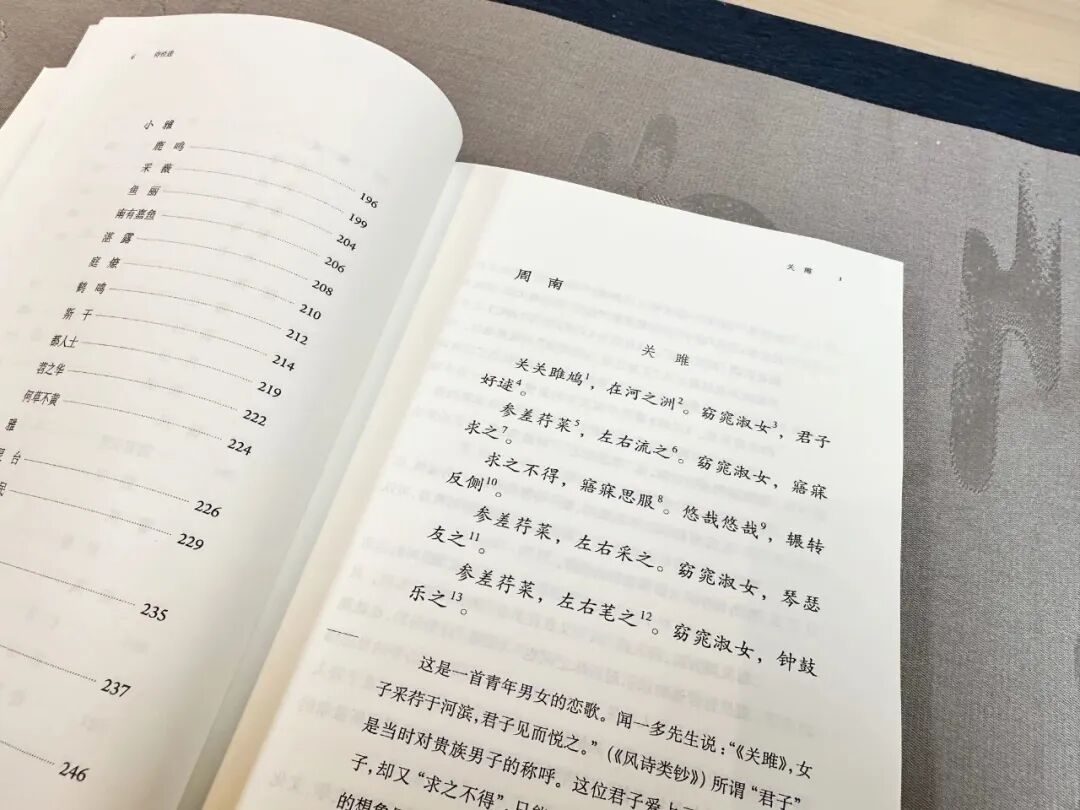 6 诗经选
小雅
鹿鸣 196
采薇 199
鱼丽 204
南有嘉鱼 206
湛露 208
庭燎 210
鹤鸣 212
斯干 214
都人士 219
苕之华 222
何草不黄 224
雅
台 226
民 229
235
237
246
关雎 1
周南
关雎
关关雎鸠1，在河之洲2。窈窕淑女3，君子
好逑4。
参差荇菜5，左右流之6。窈窕淑女，寤寐
求之7。
求之不得，寤寐思服8。悠哉悠哉9，辗转
反侧10。
参差荇菜，左右采之。窈窕淑女，琴瑟
友之11。
参差荇菜，左右芼之12。窈窕淑女，钟鼓
乐之13。
这是一首青年男女的恋歌。闻一多先生说：“《关雎》，女
子采荇于河滨，君子见而悦之。”（《风诗类钞》）所谓“君子”
是当时对贵族男子的称呼。这位君子爱上
子，却又“求之不得”，只能
的想象